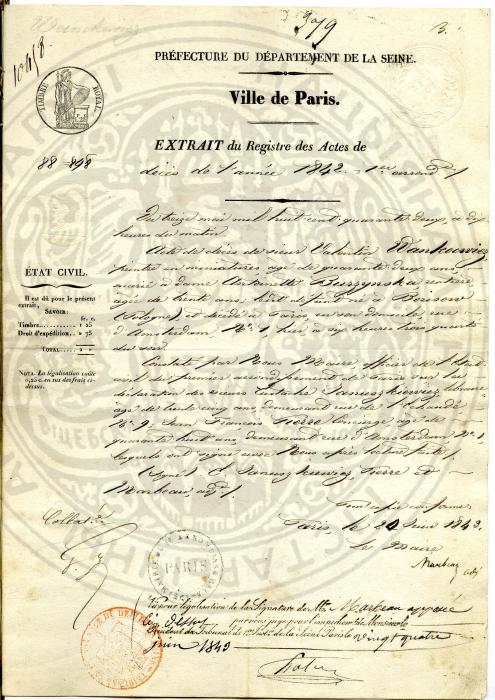 379
B.
104/8.
PRÉFECTURE DU DÉPARTEMENT DE LA SEINE.
TIMBRE ROYAL
Ville de Paris.
EXTRAIT du Registre des Actes de
88
décès de l'année 1842. - 1er arrond.t
Du treize mai mil huit cent quarante deux, à dix
heures du matin
Acte de décès de sieur Valentin Wankowicz
peintre en miniatures âgé de quarante deux ans
marié à dame Antoinette Buszynska rentière
agée de trente ans,
(Pologne) et décédé à Paris, en son domicile rue
d'Amsterdam No. 1, hier à six heures trois quarts
du soir.
Constaté par Nous Maire, officier de l'état
civil du premier arrondissement de Paris sur la
déclaration des sieurs Eustache Januszkiewicz libraire
âgé de trente cinq ans, demeurant rue de l'Echaudé
No. 9, Jean François Pierre Concierge, âgé de
quarante huit ans, demeurant rue d'Amsterdam No. 1,
lesquels ont signé avec Nous après lecture faite /.
(Signé) E. Januszkiewicz, Pierre et
Marbeau adj. /.
ÉTAT CIVIL.
Il est dû pour le présent
extrait,
SAVOIR:
fr. c.
Timbre.......... 1 25
Droit d'expédition.. » 75
TOTAL.... 2 »
NOTA. La légalisation coûte
0,25 c. en sus des frais ci-
dessus.
Pour copie conforme
Paris, le 20 Juin 1843.
Le Maire
Marbeau adj
Collat.
PARIS
Vu pour légalisation de la Signature de Mr. Marbeau apposée
ci-dessus par nous juge pour l'empêchemt. de Monsieur le
Président du Tribunal de 1re Inst. de la Seine Paris le vingt quatre
juin 1843